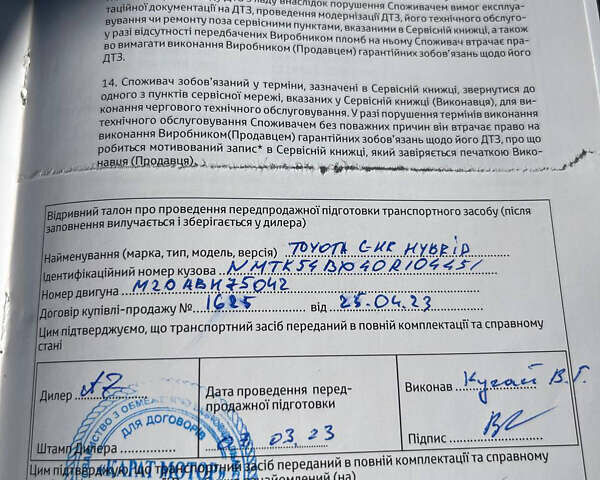 внаслідок порушення Споживачем вимог експлуа-
таційної документації на ДТЗ, проведення модернізації ДТЗ, його технічного обслуго-
вування чи ремонту поза сервісними пунктами, вказаними в Сервісній книжці, а також
у разі відсутності передбачених Виробником пломб на ньому Споживач втрачає пра-
во вимагати виконання Виробником (Продавцем) гарантійних зобов'язань щодо його
ДТЗ.
14. Споживач зобов'язаний у терміни, зазначені в Сервісній книжці, звернутися до
одного з пунктів сервісної мережі, вказаних у Сервісній книжці (Виконавця), для ви-
конання чергового технічного обслуговування. У разі порушення термінів виконання
технічного обслуговування Споживачем без поважних причин він втрачає право на
виконання Виробником(Продавцем) гарантійних зобов'язань щодо його ДТЗ, про що
робиться мотивований запис* в Сервісній книжці, який завіряється печаткою Вико-
навця (Продавця).
Відривний талон про проведення передпродажної підготовки транспортного засобу (після
заповнення вилучається і зберігається у дилера)
Найменування (марка, тип, модель, версія) TOYOTA C-HR HYBRID
Ідентифікаційний номер кузова
Номер двигуна M20ABH75042
Договір купівлі-продажу № 1625 від 25.04.23
Цим підтверджуємо, що транспортний засіб переданий в повній комплектації та справному
стані
Дилер AZ
Дата проведення перед-
продажної підготовки
Виконав Кугай В.Г.
Штамп Дилера 03.23 Підпис
ДЛЯ ДОГОВОРІВ
КАРАТ МОТОРС
Цим підтверджую, що транспортний засіб переданий в повній комплектації та справному